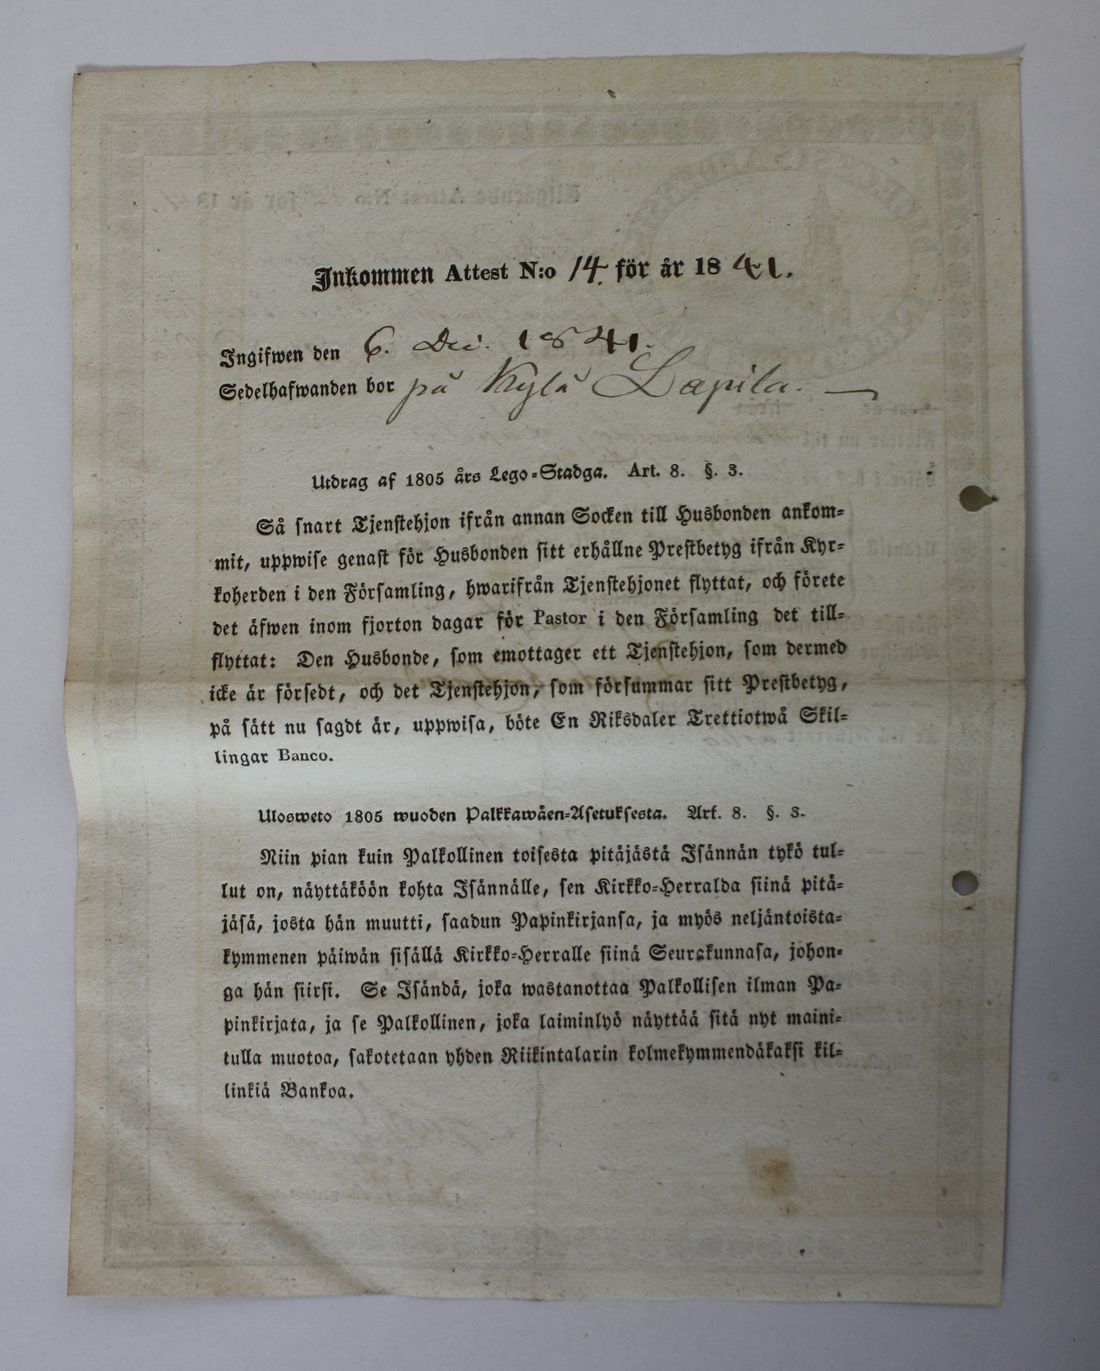 Inkommen Attest N:o 14. för år 1841.
Ingifwen den 6. Dec. 1841.
Sedelhafwanden bor på Kylä Lapila. —
Utdrag af 1805 års Lego-Stadga. Art. 8. §. 3.
Så snart Tjenstehjon ifrån annan Socken till Husbonden ankom=
mit, uppwise genast för Husbonden sitt erhållne Prestbetyg ifrån Kyr=
koherden i den Församling, hwarifrån Tjenstehjonet flyttat, och förete
det äfwen inom fjorton dagar för Pastor i den Församling det till=
flyttat: Den Husbonde, som emottager ett Tjenstehjon, som dermed
icke är försedt, och det Tjenstehjon, som försummar sitt Prestbetyg,
på sätt nu sagdt är, uppwisa, böte En Riksdaler Trettiotwå Skil=
lingar Banco.
Ulosweto 1805 wuoden Palkkawäen=Asetuksesta. Art. 8. §. 3.
Niin pian kuin Palkollinen toisesta pitäjästä Isännän tykö tul=
lut on, näyttäköön kohta Isännälle, sen Kirkko=Herralda siinä pitä=
jäsä, josta hän muutti, saadun Papinkirjansa, ja myös neljäntoista=
kymmenen päiwän sisällä Kirkko=Herralle siinä Seurakunnasa, johon=
ga hän siirsi. Se Isändä, joka wastanottaa Palkollisen ilman Pa=
pinkirjata, ja se Palkollinen, joka laiminlyö näyttää sitä nyt maini=
tulla muotoa, sakotetaan yhden Riikintalarin kolmekymmendäkaksi kil=
linkiä Bankoa.